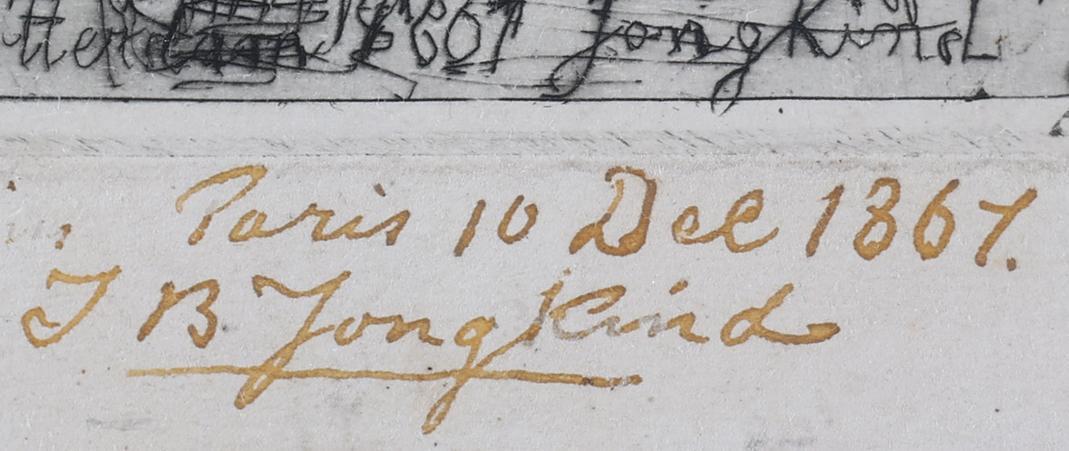 1867 Jongkind
Paris 10 Dec 1867.
J B Jongkind